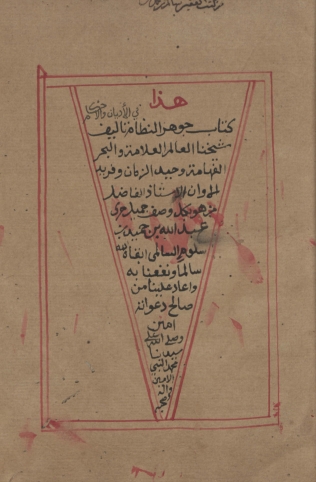 هذا
في الأديان والأحكام
كتاب جوهر النظام تاليف
شيخنا العالم العلامة والبحر
الفهامة وحيد الزمان وفريد
الاوان الاستاذ الفاضل
من هو بكل وصف جميل حري
عبد الله بن حميد بن
سلوم السالمي ابقاه الله
سالما ونفعنا به
واعاد علينا من
صالح دعواته
امين
وصلى الله على
سيدنا
محمد النبي
الامين
واله
وصحبه